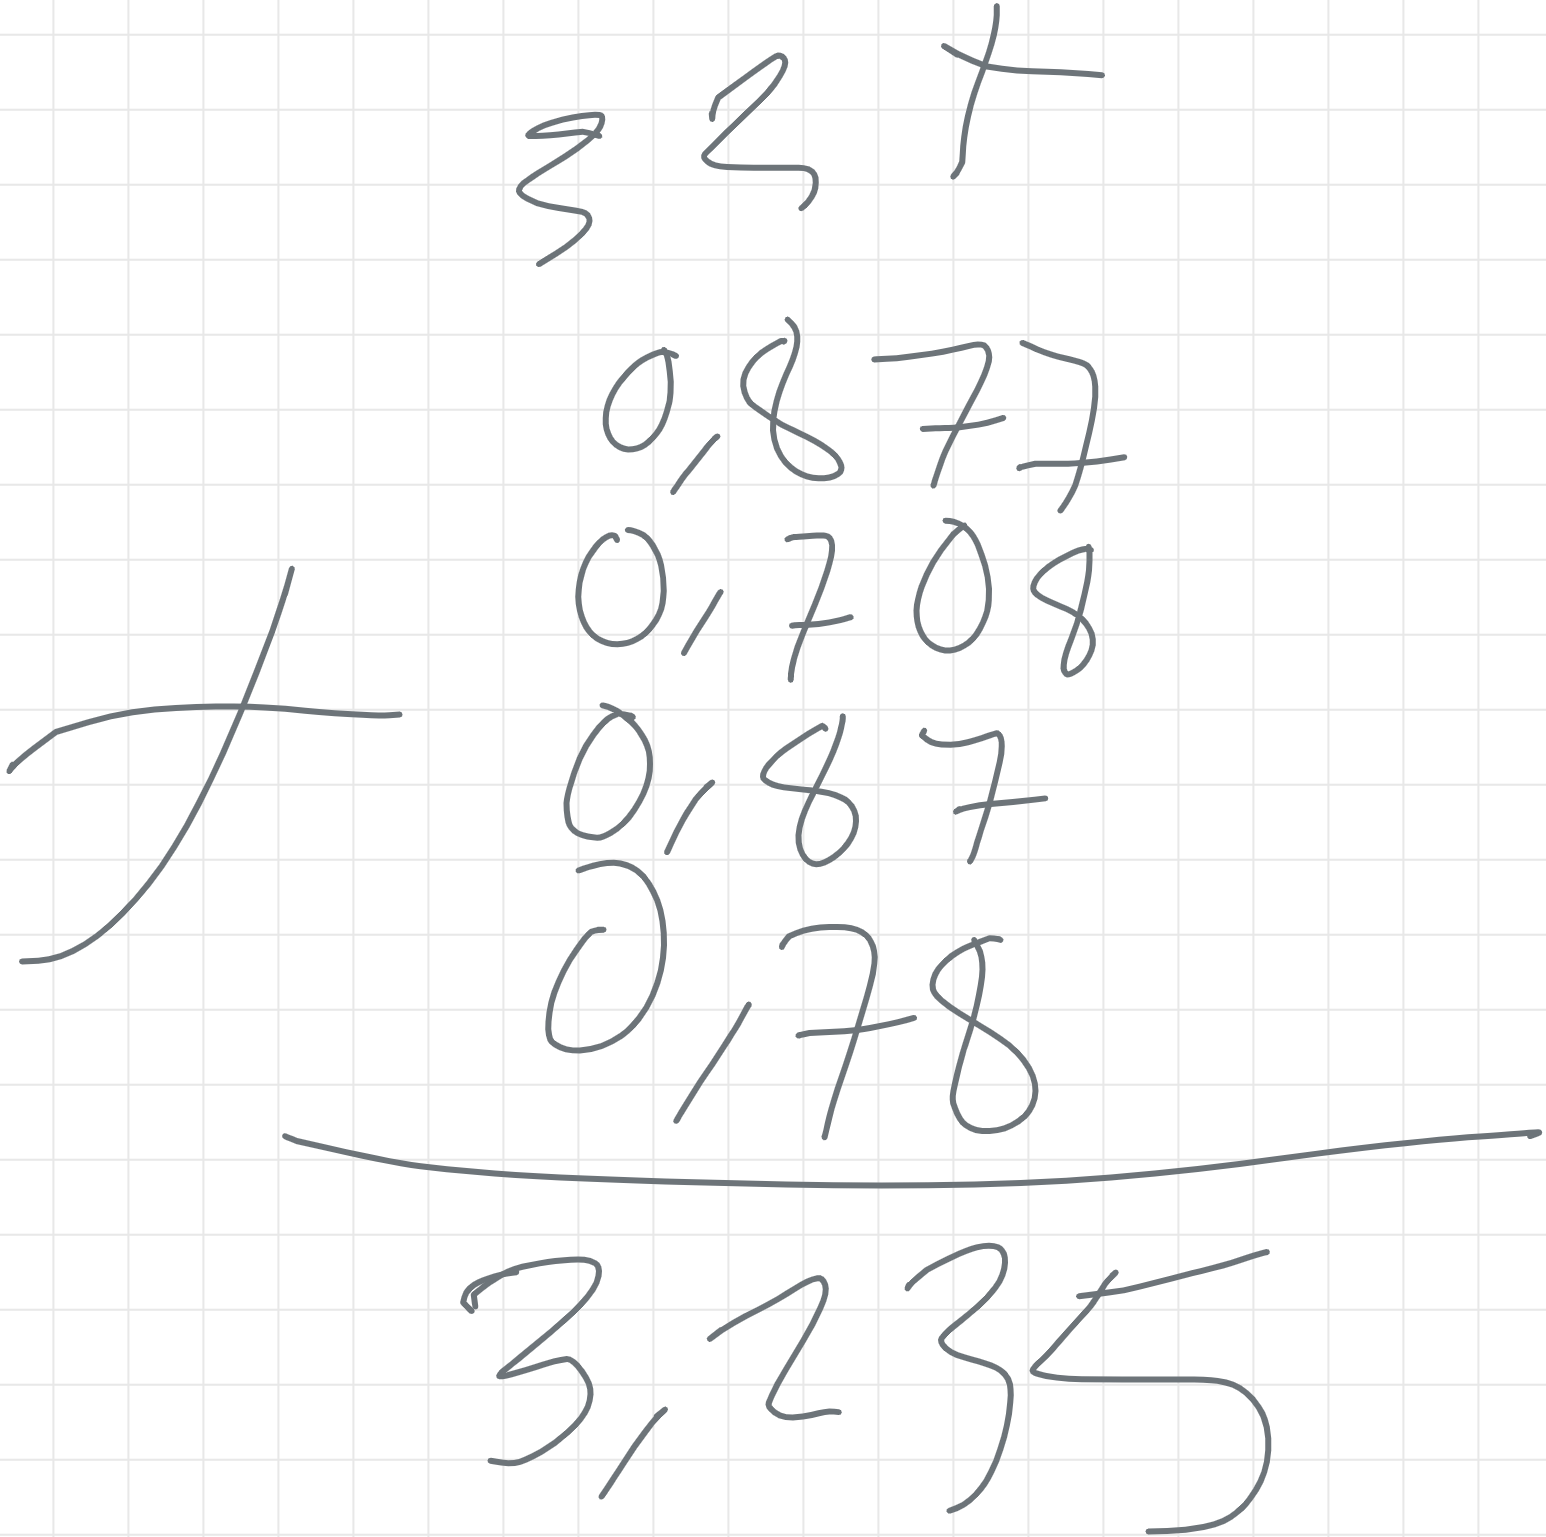 3 2 +
0,877
0,708
+
0,87
0,78
3,235